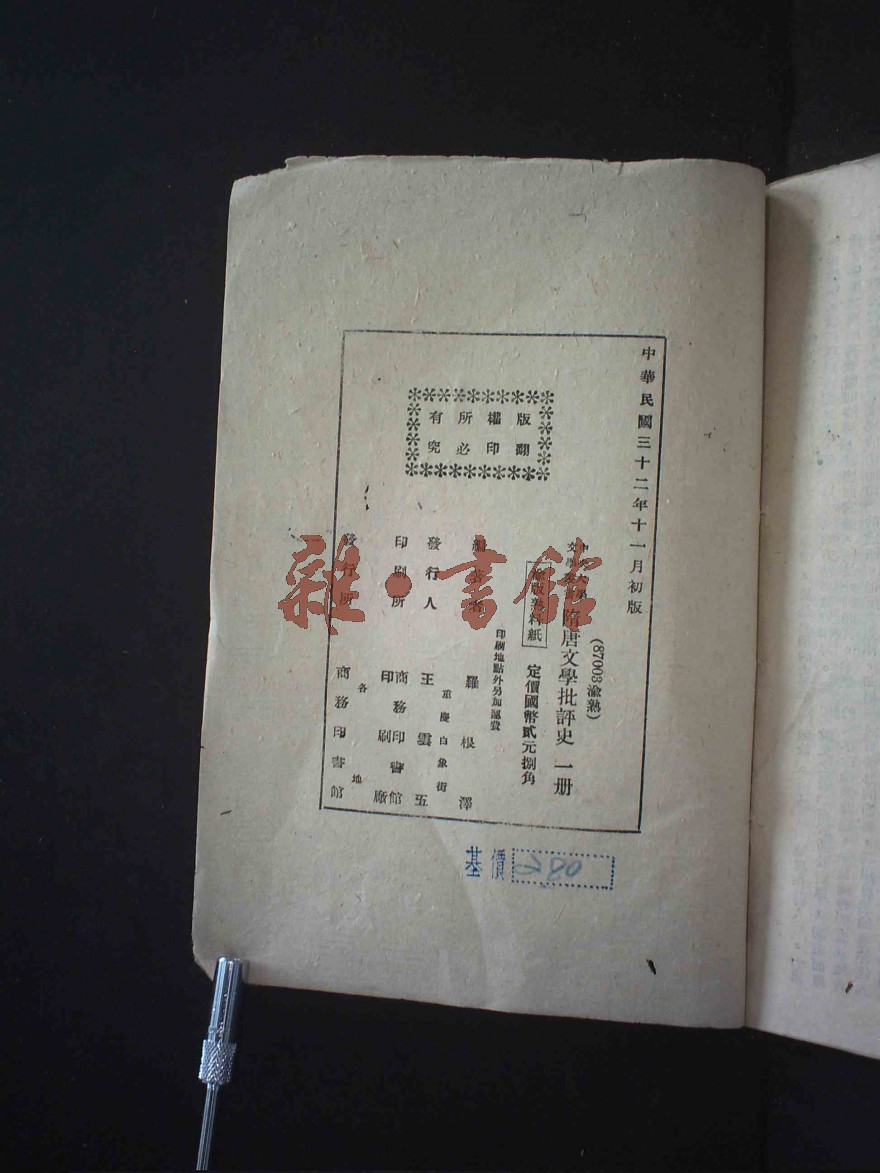 中華民國三十二年十一月初版
(87003渝熟)
隋唐文學批評史 一册
定價國幣貳元捌角
印刷地點外另加運費
羅根澤
發行人 王雲五
重慶白象街
印刷所 商務印書館
印刷廠
發行所 商務印書館
各地
版權所有
翻印必究
基價 280
雜·書館